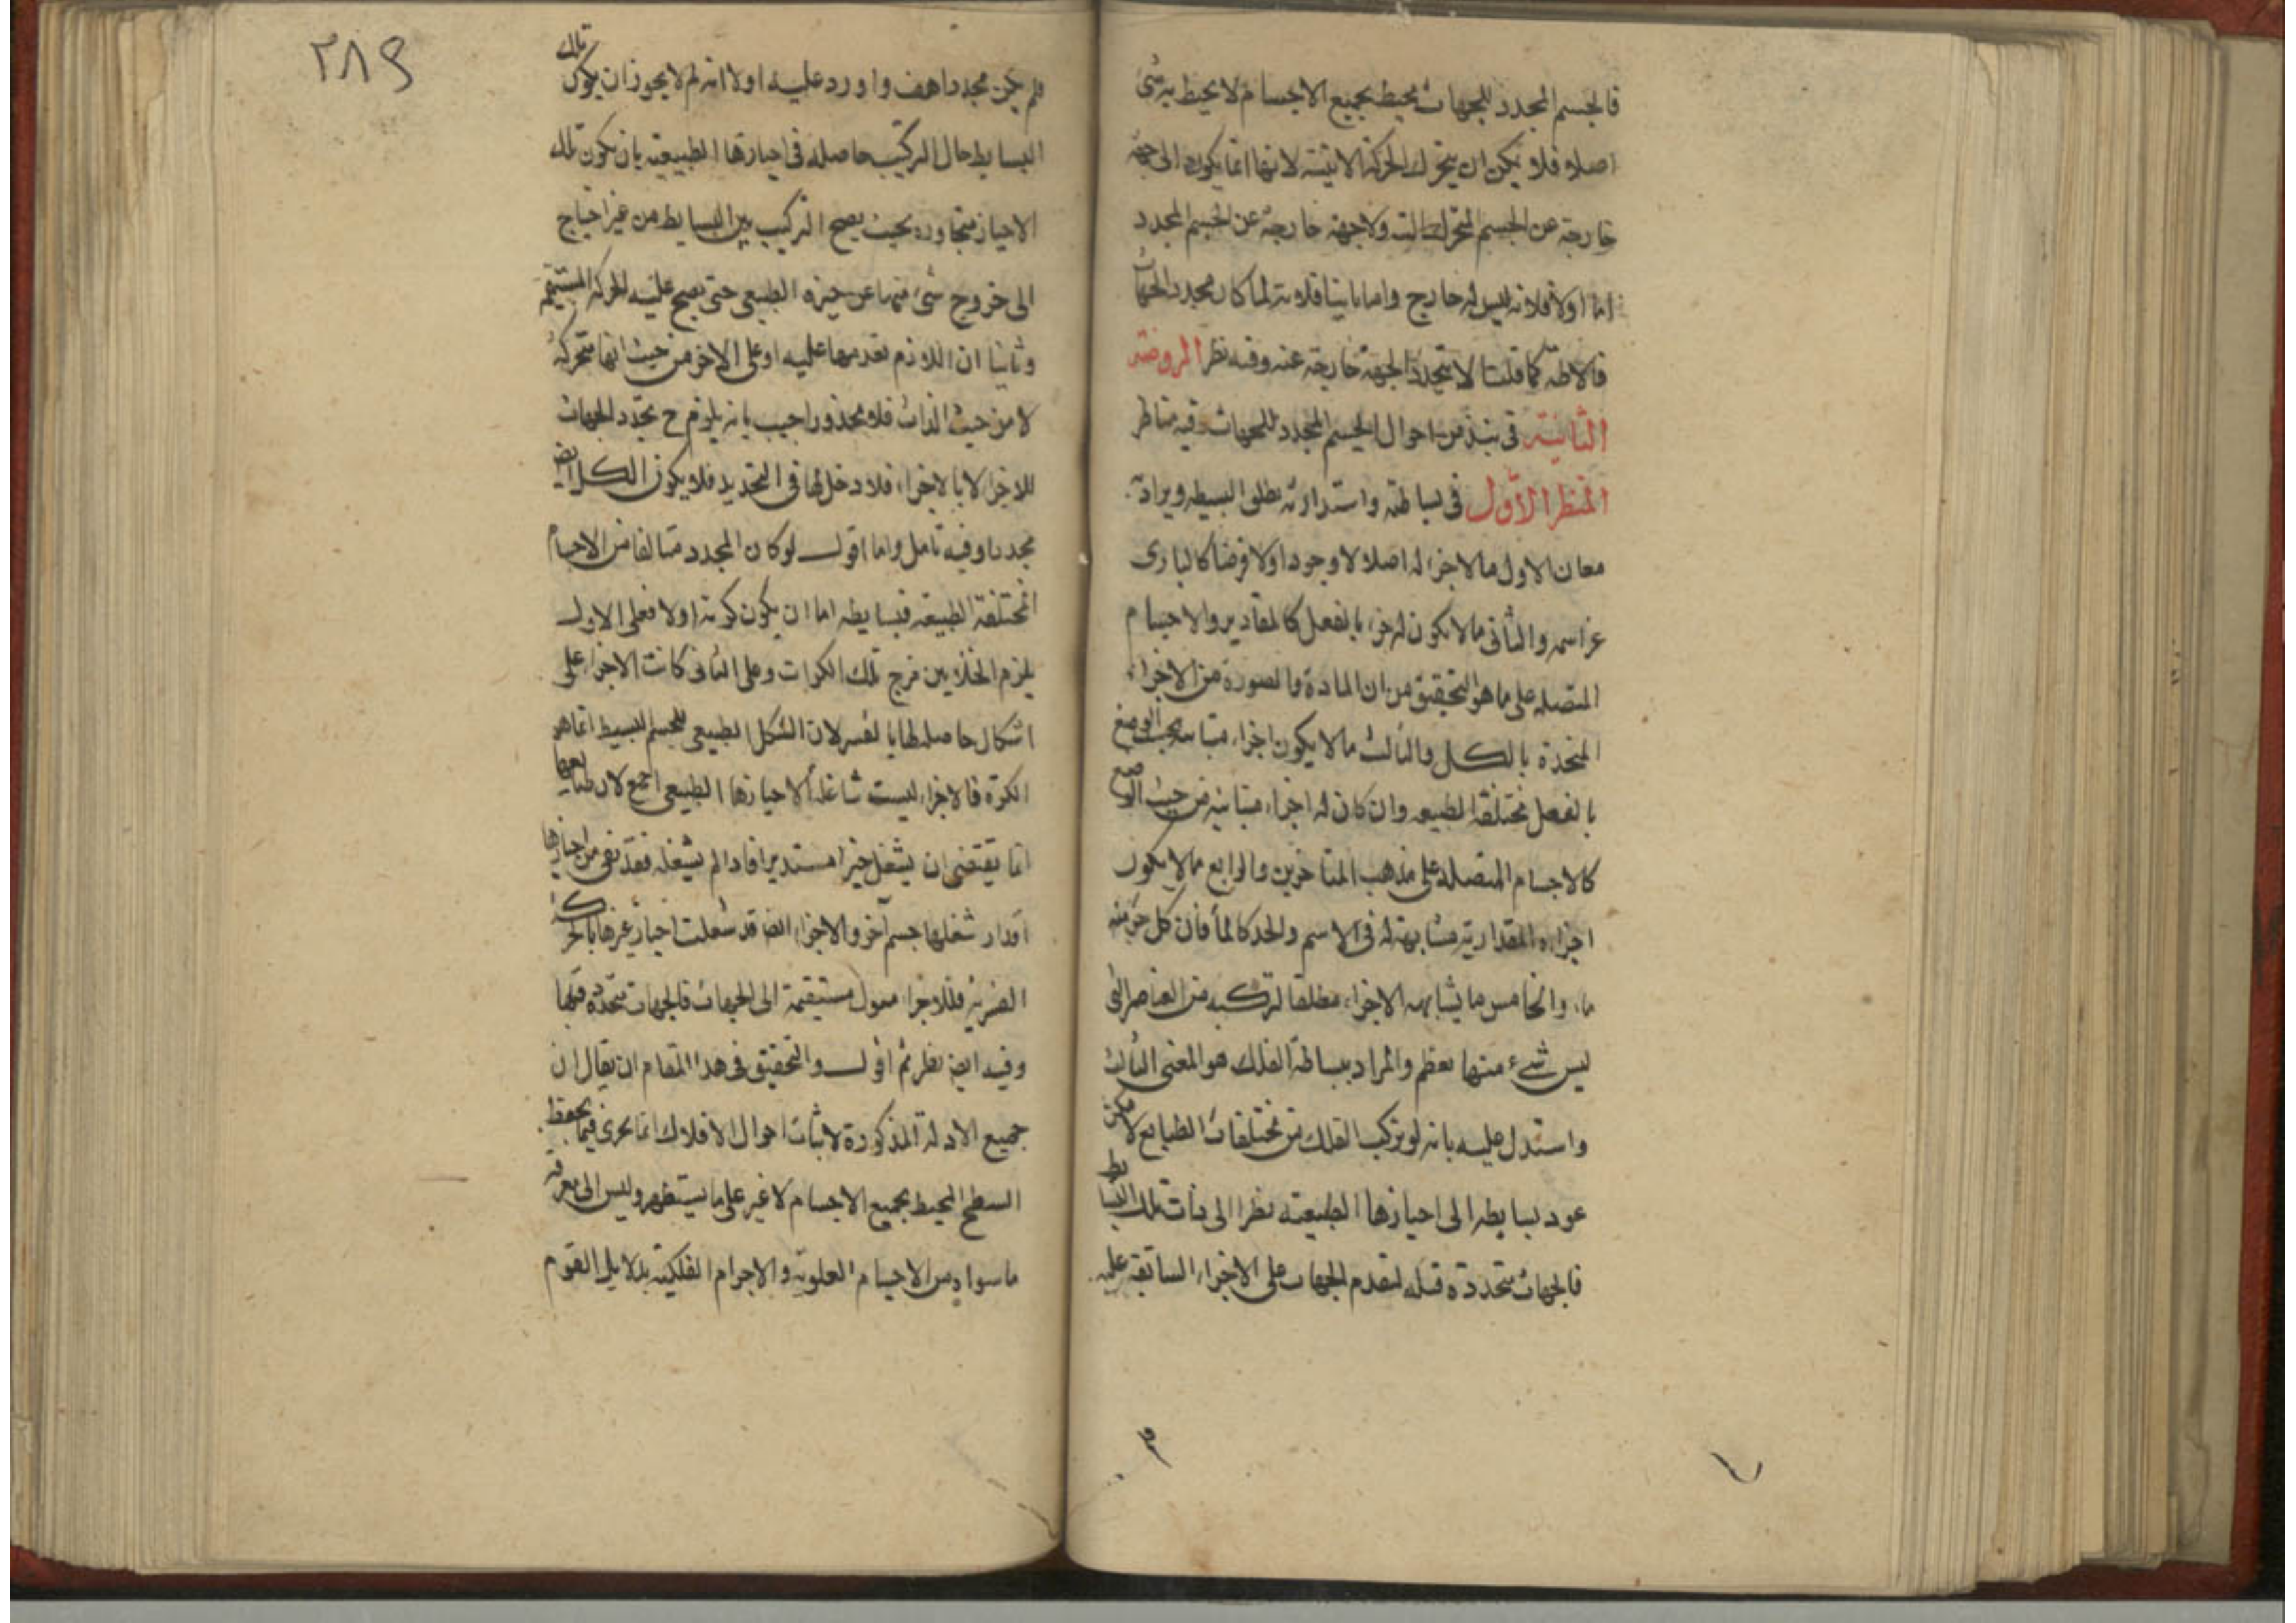 فالجسم المحدد للجهات محيط بجميع الاجسام لا يحيط به شئ
اصلا فلا يمكن ان يتحرك الحركة الاينية لانها انما يكون الى جهة
خارجة عن الجسم المتحرك البتة ولا جهة خارجة عن الجسم المحدد
اما اولا فلانه ليس له خارج واما ثانيا فلانه لما كان محدد الجهات
فالاطة كما قلنا لا يتحدد الجهة خارجة عنه وفيه نظر الروضة
الثانية فى نبذ من احوال الجسم المحدد للجهات وفيه مناظر
المنظر الاول فى بساطته واستدارته يطلق البسيط ويراد به
معان الاول ما لا جزء له اصلا لا وجودا ولا فرضا كالبارى
عز اسمه والثانى ما لا يكون له جزء بالفعل كالمقادير والاجسام
المتصلة على ما هو التحقيق من ان المادة والصورة من الاجزاء
المتحدة بالكل والثالث ما لا يكون اجزاء متباينة بحسب الوضع
بالفعل مختلفة الطبيعة وان كان له اجزاء متباينة من حيث الوضع
كالاجسام المتصلة على مذهب المتاخرين والرابع ما لا يكون
اجزاءه المقدارية مشابهة له فى الاسم والحد كالماء فان كل جزء منه
ماء والخامس ما يشابهه الاجزاء مطلقا لتركبه من العناصر التى
ليس شئ منها بعظم والمراد ببساطة الفلك هو المعنى الثالث
واستدل عليه بانه لو تركب الفلك من مختلفات الطبايع لامكن
عود بسايطه الى احيازها الطبيعية نظرا الى ذات تلك البسايط
فالجهات متحددة قبله لتقدم الجهات على الاجزاء السابقة عليه
٢٨٩
فلم يكن محددا هف واورد عليه اولا انه لم لا يجوز ان يكون تلك
البسايط حال التركيب حاصلة فى احيازها الطبيعية بان يكون تلك
الاحياز متجاورة بحيث يصح التركيب بين البسايط من غير احتياج
الى خروج شئ منها عن حيزه الطبيعى حتى يصح عليه الحركة المستقيمة
وثانيا ان اللازم تقدمها عليه او على الاخر من حيث انها متحركة
لا من حيث الذات فلا محذور اجيب بانه يلزم ح تحدد الجهات
للاجزاء لا بالاجزاء فلا دخل لها فى التحديد فلا يكون الكل ايضا
محددا وفيه تامل واما اقول لو كان المحدد متالفا من الاجسام
المختلفة الطبيعة فبسايطه اما ان يكون كرية اولا فعلى الاول
يلزم الخلا بين فرج تلك الكرات وعلى الثانى كانت الاجزاء على
اشكال حاصلة لها بالقسر لان الشكل الطبيعى للجسم البسيط انما هو
الكرة فالاجزاء ليست شاغلة لاحيازها الطبيعى اجمع لان طبايعها
انما يقتضى ان يشغل حيزا مستديرا فاذا لم يشغله فقد بقى من احيازها
اقدار شغلها جسم آخر والاجزاء ايضا قد شغلت احياز غيرها بالحركة
القسرية فللاجزاء ميول مستقيمة الى الجهات فالجهات متحددة قبلها
وفيه ايضا نظر ثم اقول والتحقيق فى هذا المقام ان يقال ان
جميع الادلة المذكورة لاثبات احوال الافلاك انما يجرى فيما يحفظ
السطح المحيط بجميع الاجسام لا غير على ما يستظهر وليس الى معرفة
ما سواه من الاجسام العلوية والاجرام الفلكية بدلايل القوم